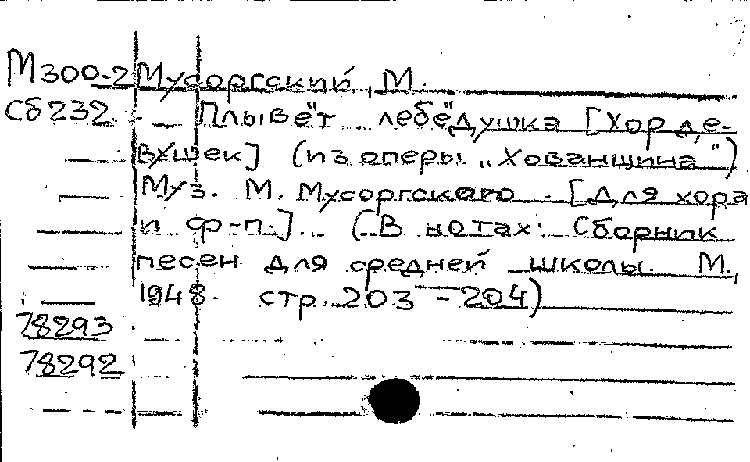 М300-2 Мусоргский, М.
Сб232 Плывёт лебёдушка [Хор де-
вушек] (из оперы „Хованщина")
Муз. М. Мусоргского. [Для хора
и ф-п.] (В нотах: Сборник
песен для средней школы. М.,
1948. стр. 203-204)
78293
78292